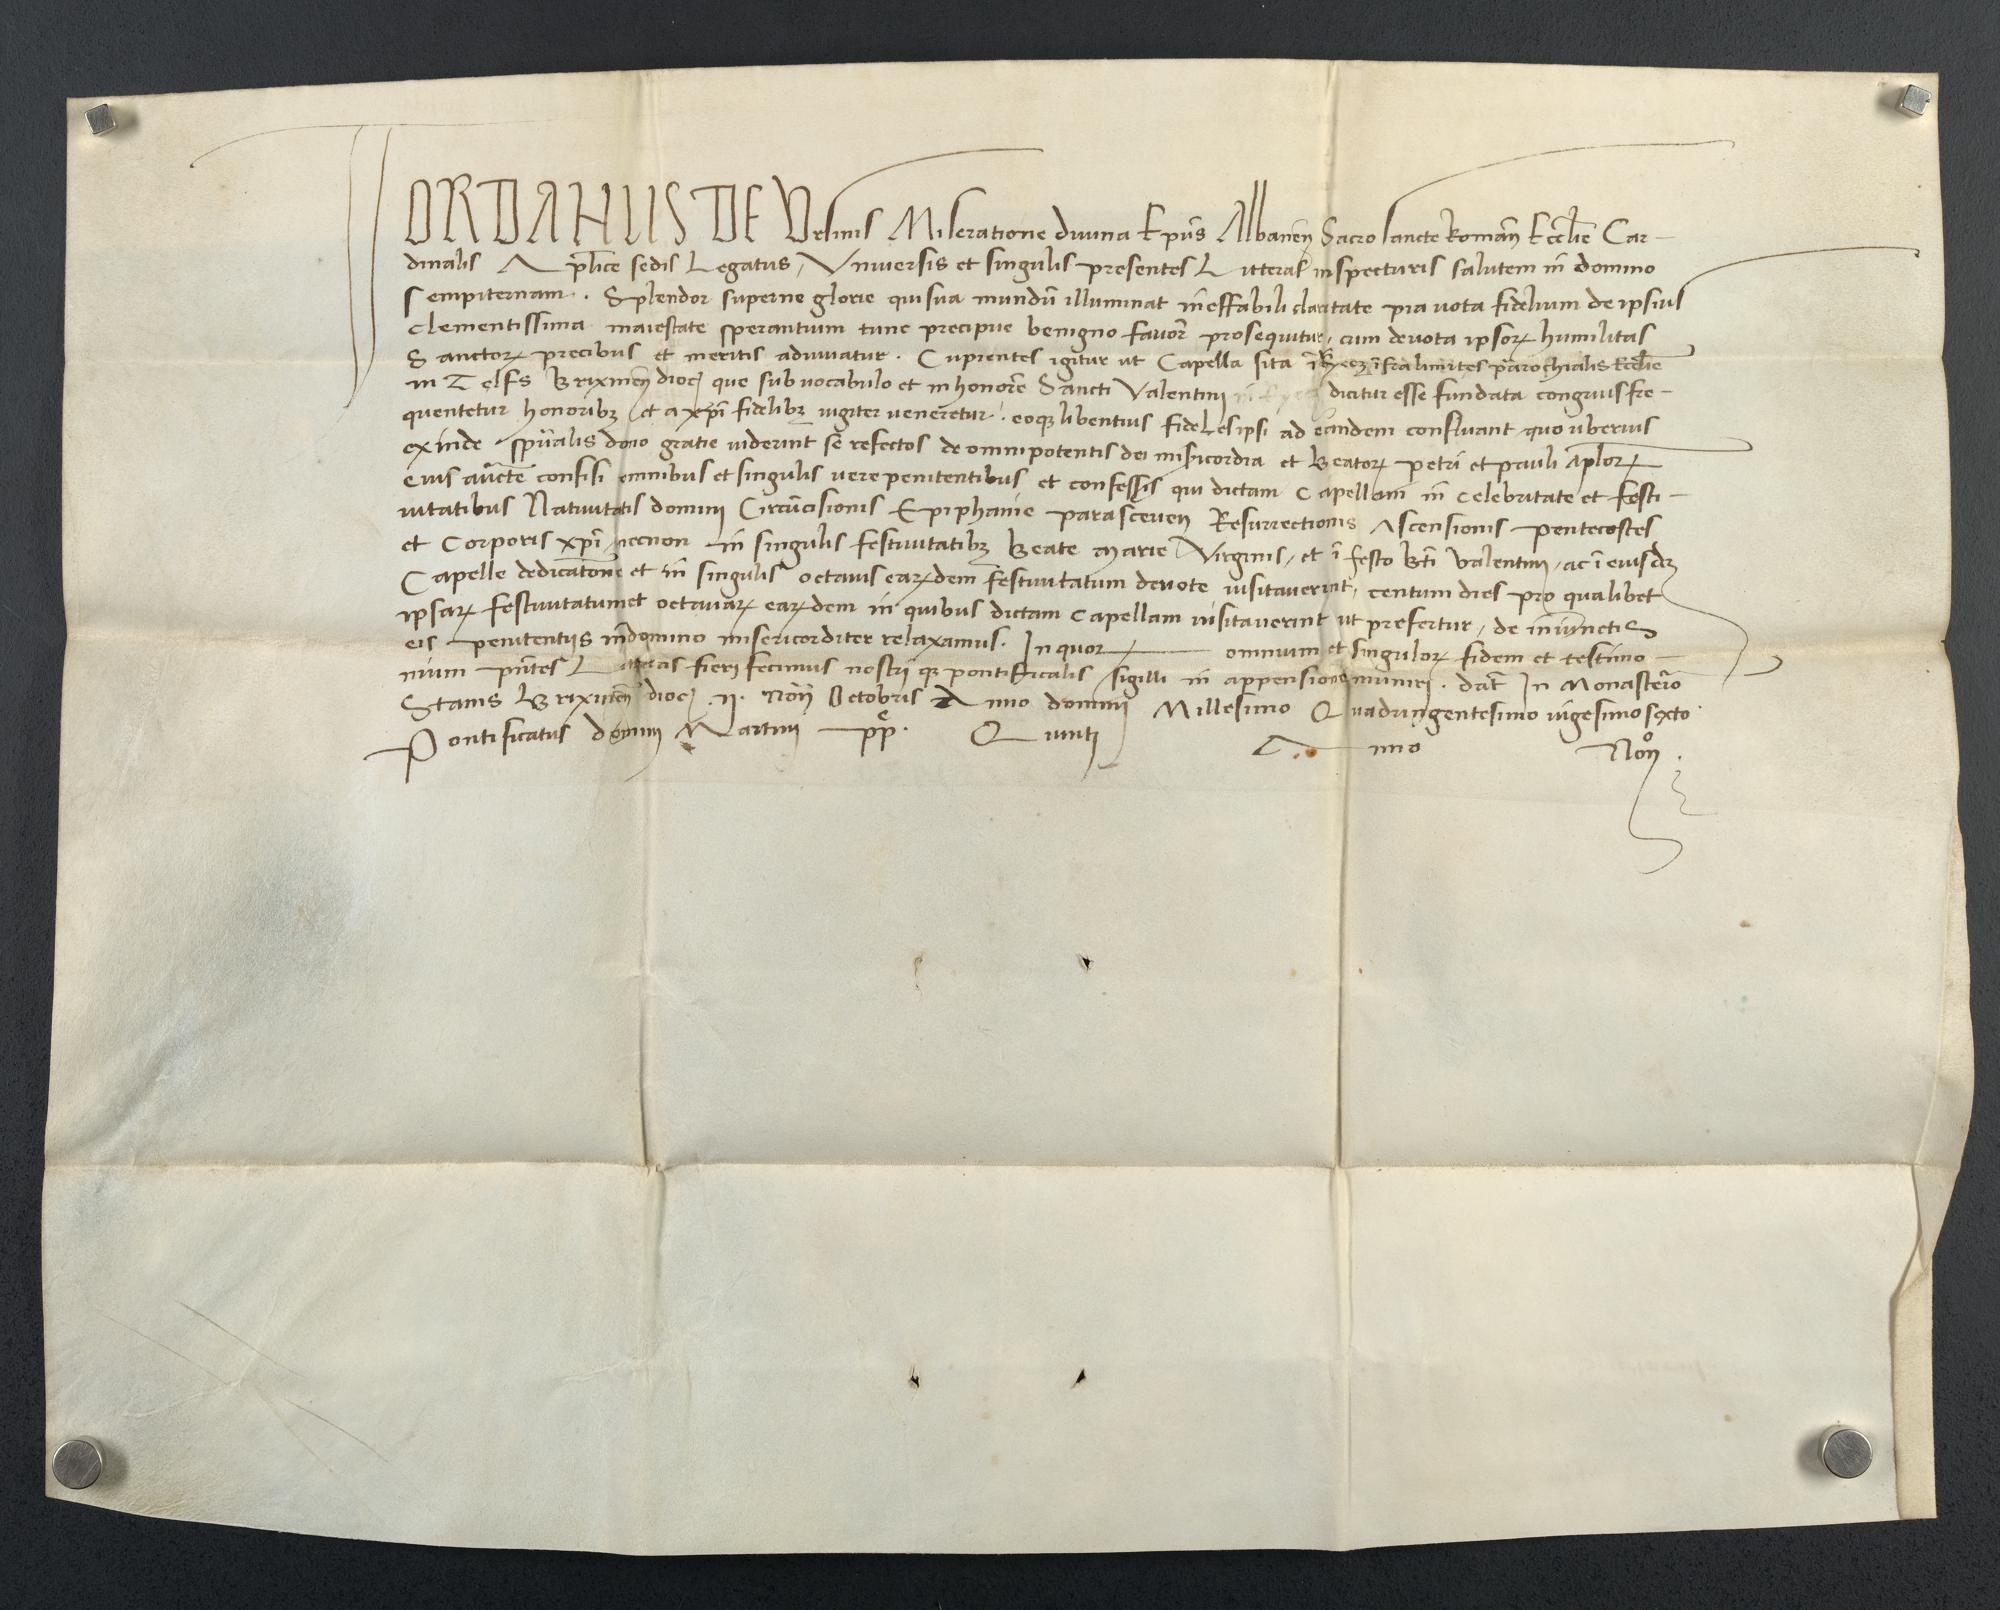 IORDANUS DE Ursinis Miseratione divina Ep̄us Albaneñ Sacrosancte Romāñ Eccl̄ie Car-
dinalis Ap̄lice sedis Legatus, Vniversis et singulis presentes Litteras inspecturis salutem in domino
sempiternam. Splendor superne glorie qui sua mundū illuminat ineffabili claritate pia vota fidelium de ipsius
clementissima maiestate sperantium tunc precipue benigno favor̄ prosequitur, cum devota ipsoꝝ humilitas
Sanctoꝝ precibus et meritis adiuvatur. Cupientes igitur ut Capella sita ī īfra limites parochialis Eccl̄ie
in Telfs Brixineñ dioc̄ que sub vocabulo et in honore Sancti Valentini dicitur esse fundata congruis fre-
quentetur honoribꝫ et a xp̄i fidelibꝫ iugiter veneretur. eoqꝫ libentius fideles ipsi ad eandem confluant quo uberius
exinde sp̄ualis dono gratie viderint se refectos de omnipotentis dei misicordia et Beatoꝝ Petri et Pauli Ap̄loꝝ
eius auc̄te confisi omnibus et singulis vere penitentibus et confessis qui dictam Capellam in celebritate et festi-
vitatibus Nativitatis domini Circūcisionis Epiphanie Parasceveñ Resurrectionis Ascensionis Pentecostes
et Corporis xp̄i necnon in singulis festivitatibꝫ Beate Marie Virginis, et ī festo Bt̄i Valentini, ac ī eiusdꝫ
Capelle dedicatōne et in singulis octavis eaꝝdem festivitatum devote visitaverint, centum dies pro qualibet
ipsaꝝ festivitatum et octavaꝝ eaꝝdem in quibus dictam Capellam visitaverint ut prefertur, de iniunctis
eis penitentiis in domino misericorditer relaxamus. In quoꝝ omnium et singuloꝝ fidem et testimo-
nium pn̄tes Litteras fieri fecimus nostri qꝫ pontificalis sigilli in appensione muniri. dat̄ In Monasterio
Stams Brixineñ dioc̄ .ij. Noñ Octobris Anno domini Millesimo Quadringentesimo vigesimosexto
Pontificatus domini Martini pp̄. Quinti Anno Nonº.